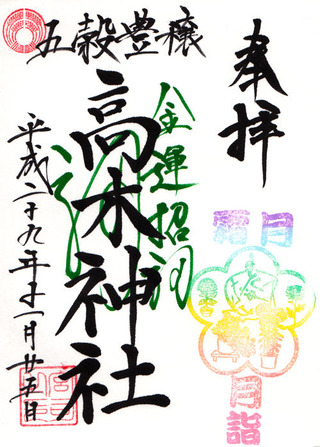 奉拝
霜月
月詣
五穀豊穣
金運招福
高木神社
平成二十九年十一月廿五日